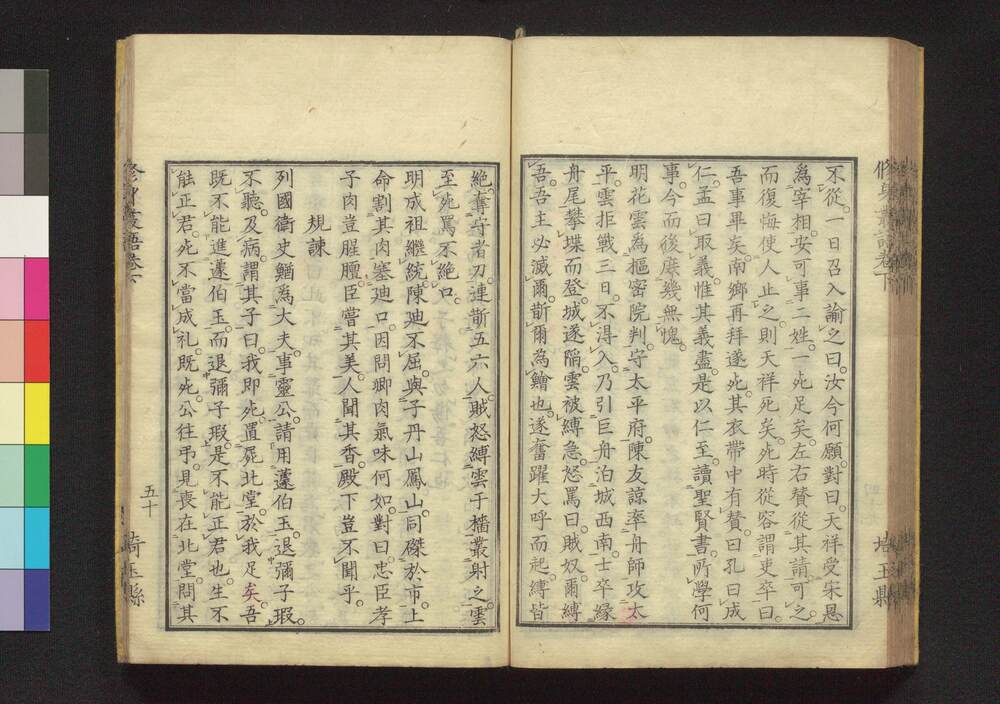 不從。一日召入諭之曰。汝今何願。對曰。天祥受宋恩
為宰相。安可事二姓。一死足矣。左右賛從其請。可之。
而復悔使人止之。則天祥死矣。死時從容謂吏卒曰。
吾事畢矣。南鄉再拜遂死。其衣帶中有賛。曰孔曰成
仁。孟曰取義。惟其義盡。是以仁至。讀聖賢書。所學何
事。今而後庶幾無愧。
明花雲為樞密院判。守太平府。陳友諒率舟師攻太
平。雲拒戰三日。不得入。乃引巨舟泊城西南。士卒緣
舟尾攀堞而登。城遂陷。雲被縛急。怒罵曰。賊奴爾縛
吾。吾主必滅爾。斮爾為鱠也。遂奮躍大呼而起。縛皆
絶。奪守者刃。連斮五六人。賊怒縛雲于檣叢射之。雲
至死罵不絶口。
明成祖繼統。陳迪不屈。與子丹山鳳山。同磔於市。上
命割其肉塞迪口。因問卿肉氣味何如。對曰忠臣孝
子肉豈腥膻。臣嘗其美。人聞其香。殿下豈不聞乎。
規諫
列國衞史鰌為大夫。事靈公。請用蘧伯玉。退彌子瑕。
不聽。及病。謂其子曰。我即死。置屍北堂。於我足矣。吾
既不能進蘧伯玉。而退彌子瑕。是不能正君也。生不
能正君。死不當成礼。既死。公往弔。見喪在北堂。問其
五十